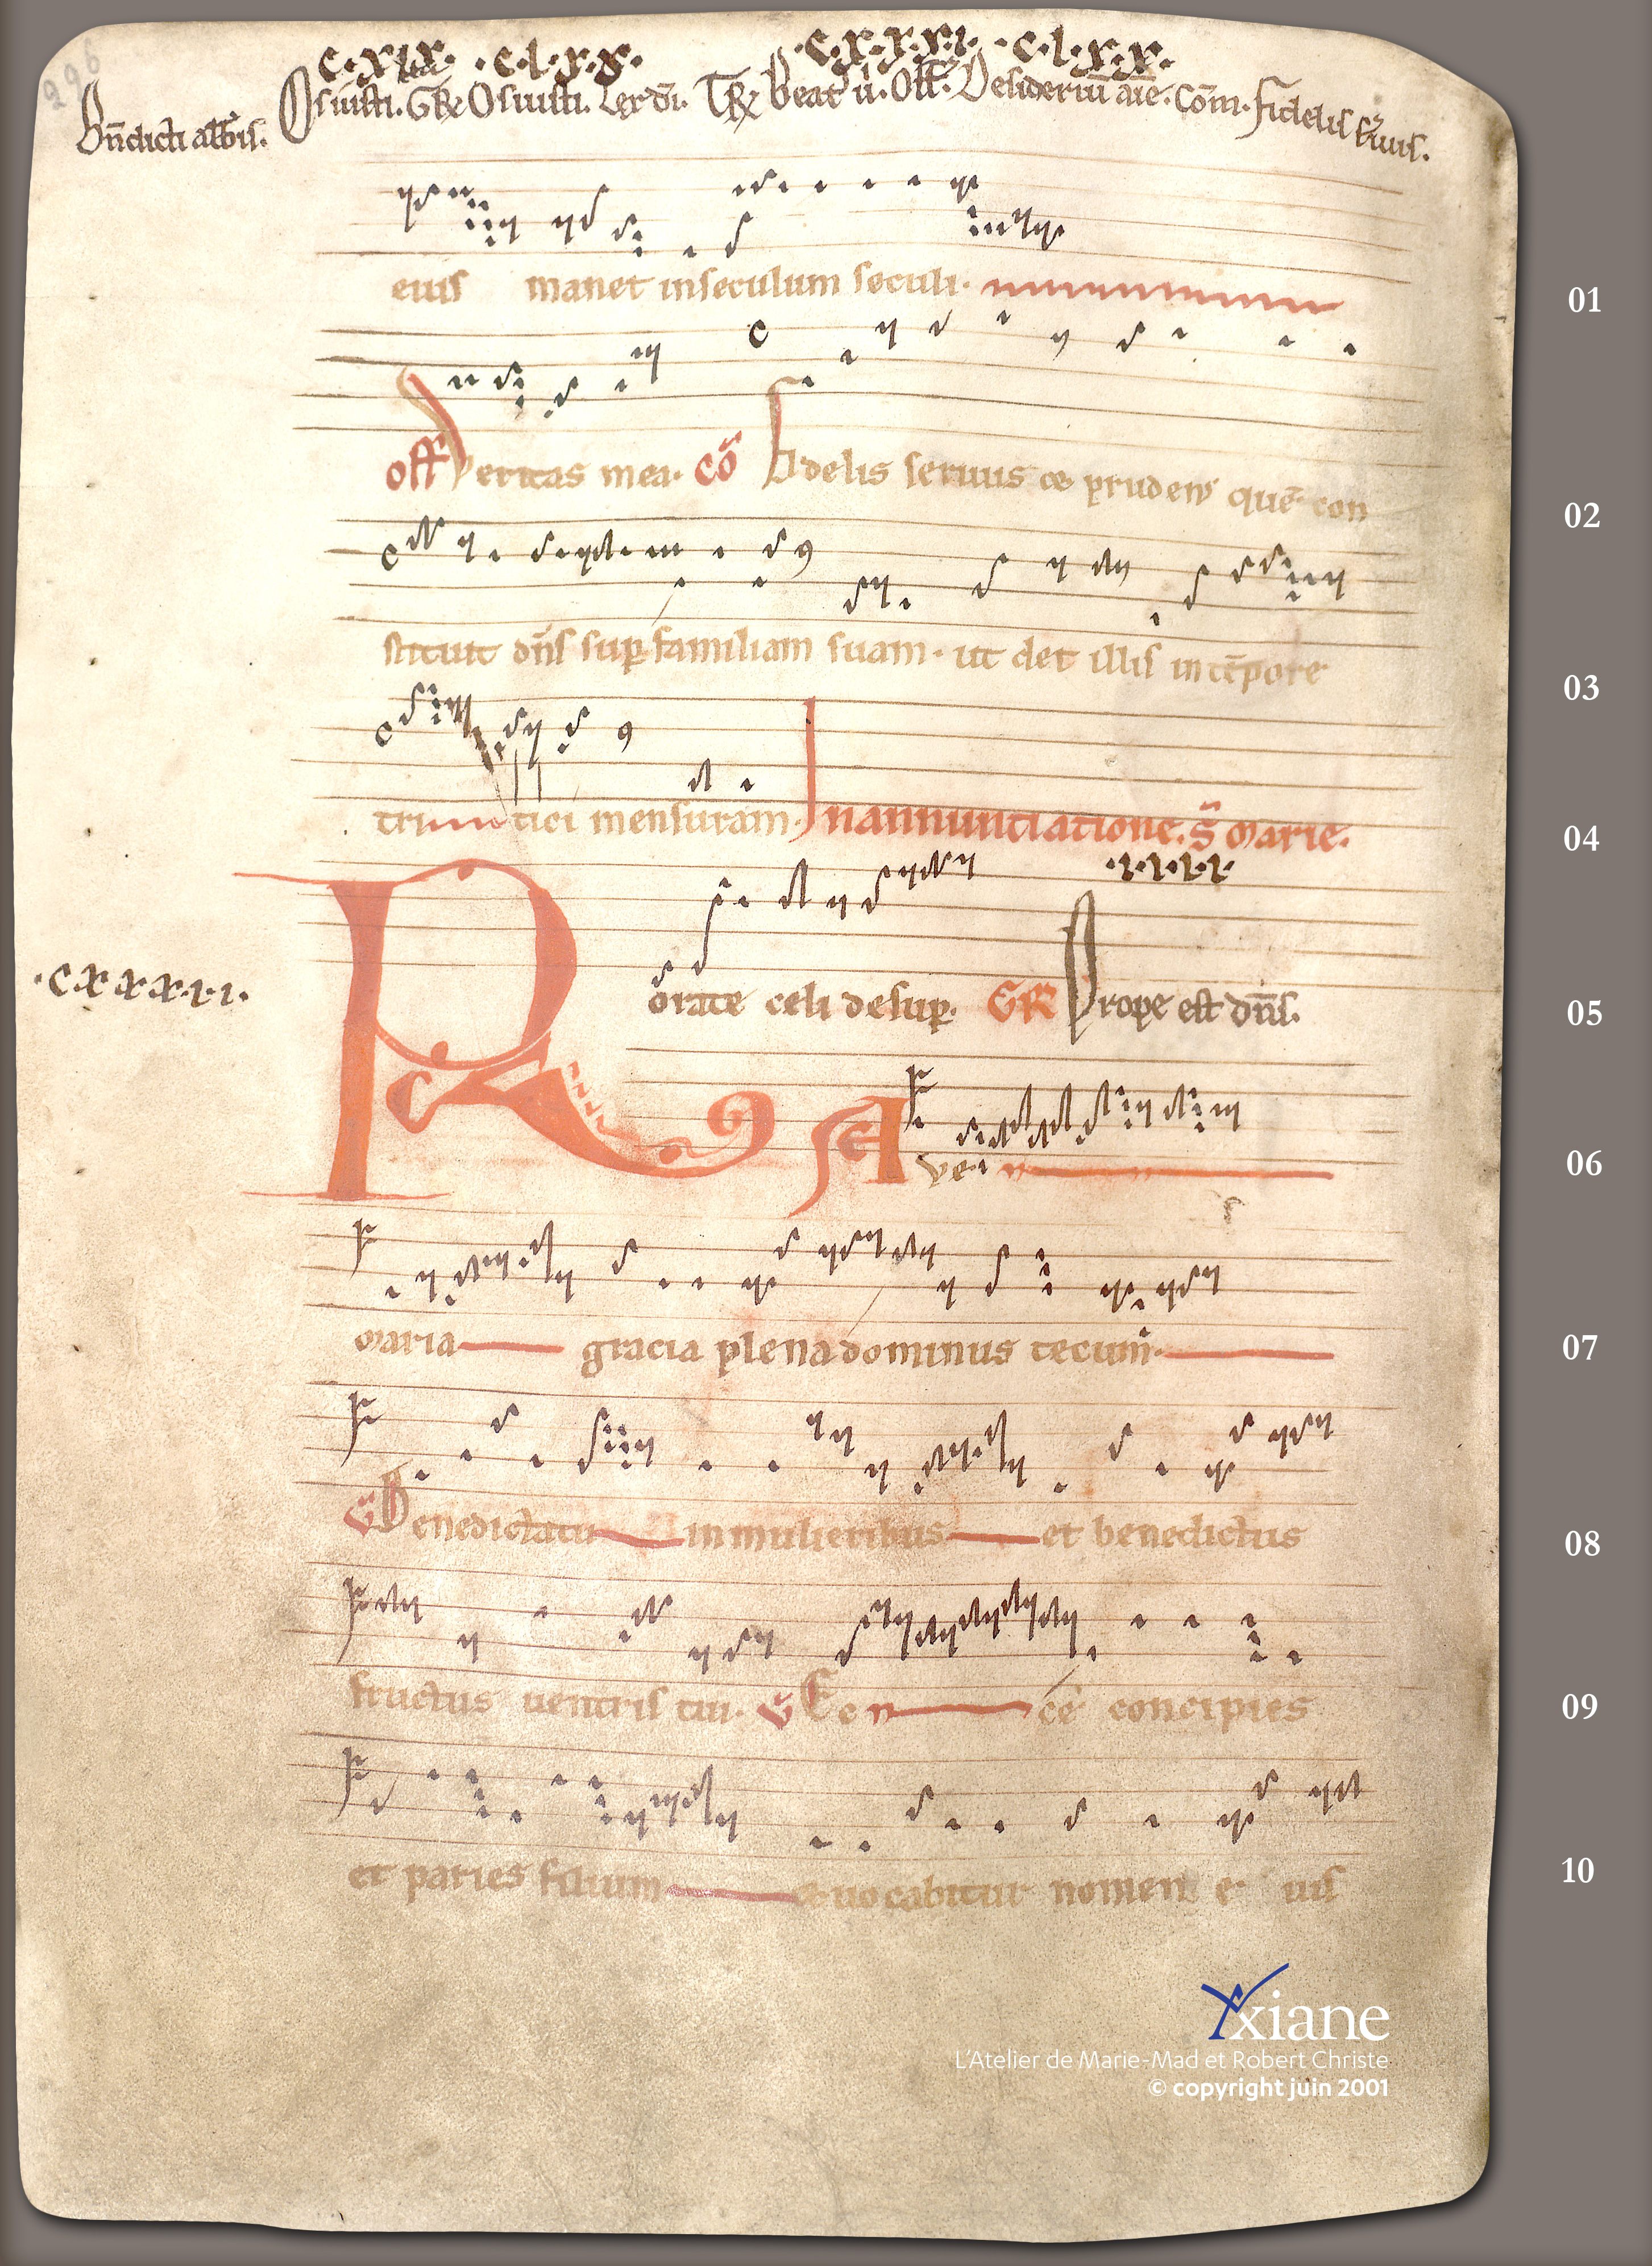 296
c.xlx. .c.l.x.x. .c.x.x.x.i. .c.l.x.x.
Bn̄dicti abb̄is. Os iusti. GR Os iusti. Lex dī. TR Beat' ū. Off. Desideriū aīe. Com̄. Fidelis s̄uus.
eius manet in seculum seculi. 01
off Veritas mea. cō Fidelis seruus & prudens quē con 02
stituit dn̄s sup familiam suam. ut det illis in tēpore 03
tritici mensuram. In annunciatione. S̄ Marie. 04
.i.i.i.i.
.c.x.x.x.x.i.
Rorate celi desup. GR Prope est dn̄s. 05
A ve. 06
maria gracia plena dominus tecum. 07
V Benedicta tu in mulieribus et benedictus 08
fructus uentris tui. V Ec ce concipies 09
et paries filium & uocabitur nomen e ius 10
Axiane
L'Atelier de Marie-Mad et Robert Christe
© copyright juin 2001